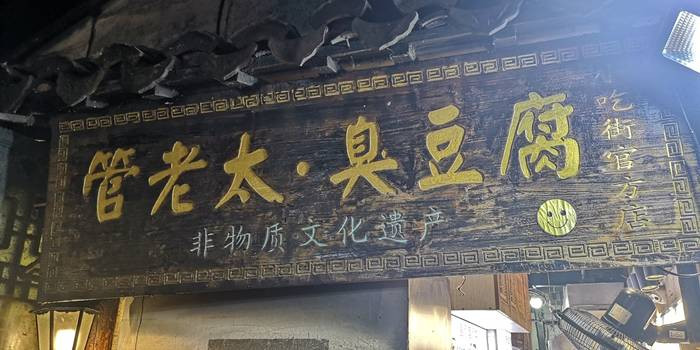 管老太·臭豆腐
非物质文化遗产
吃街官方店